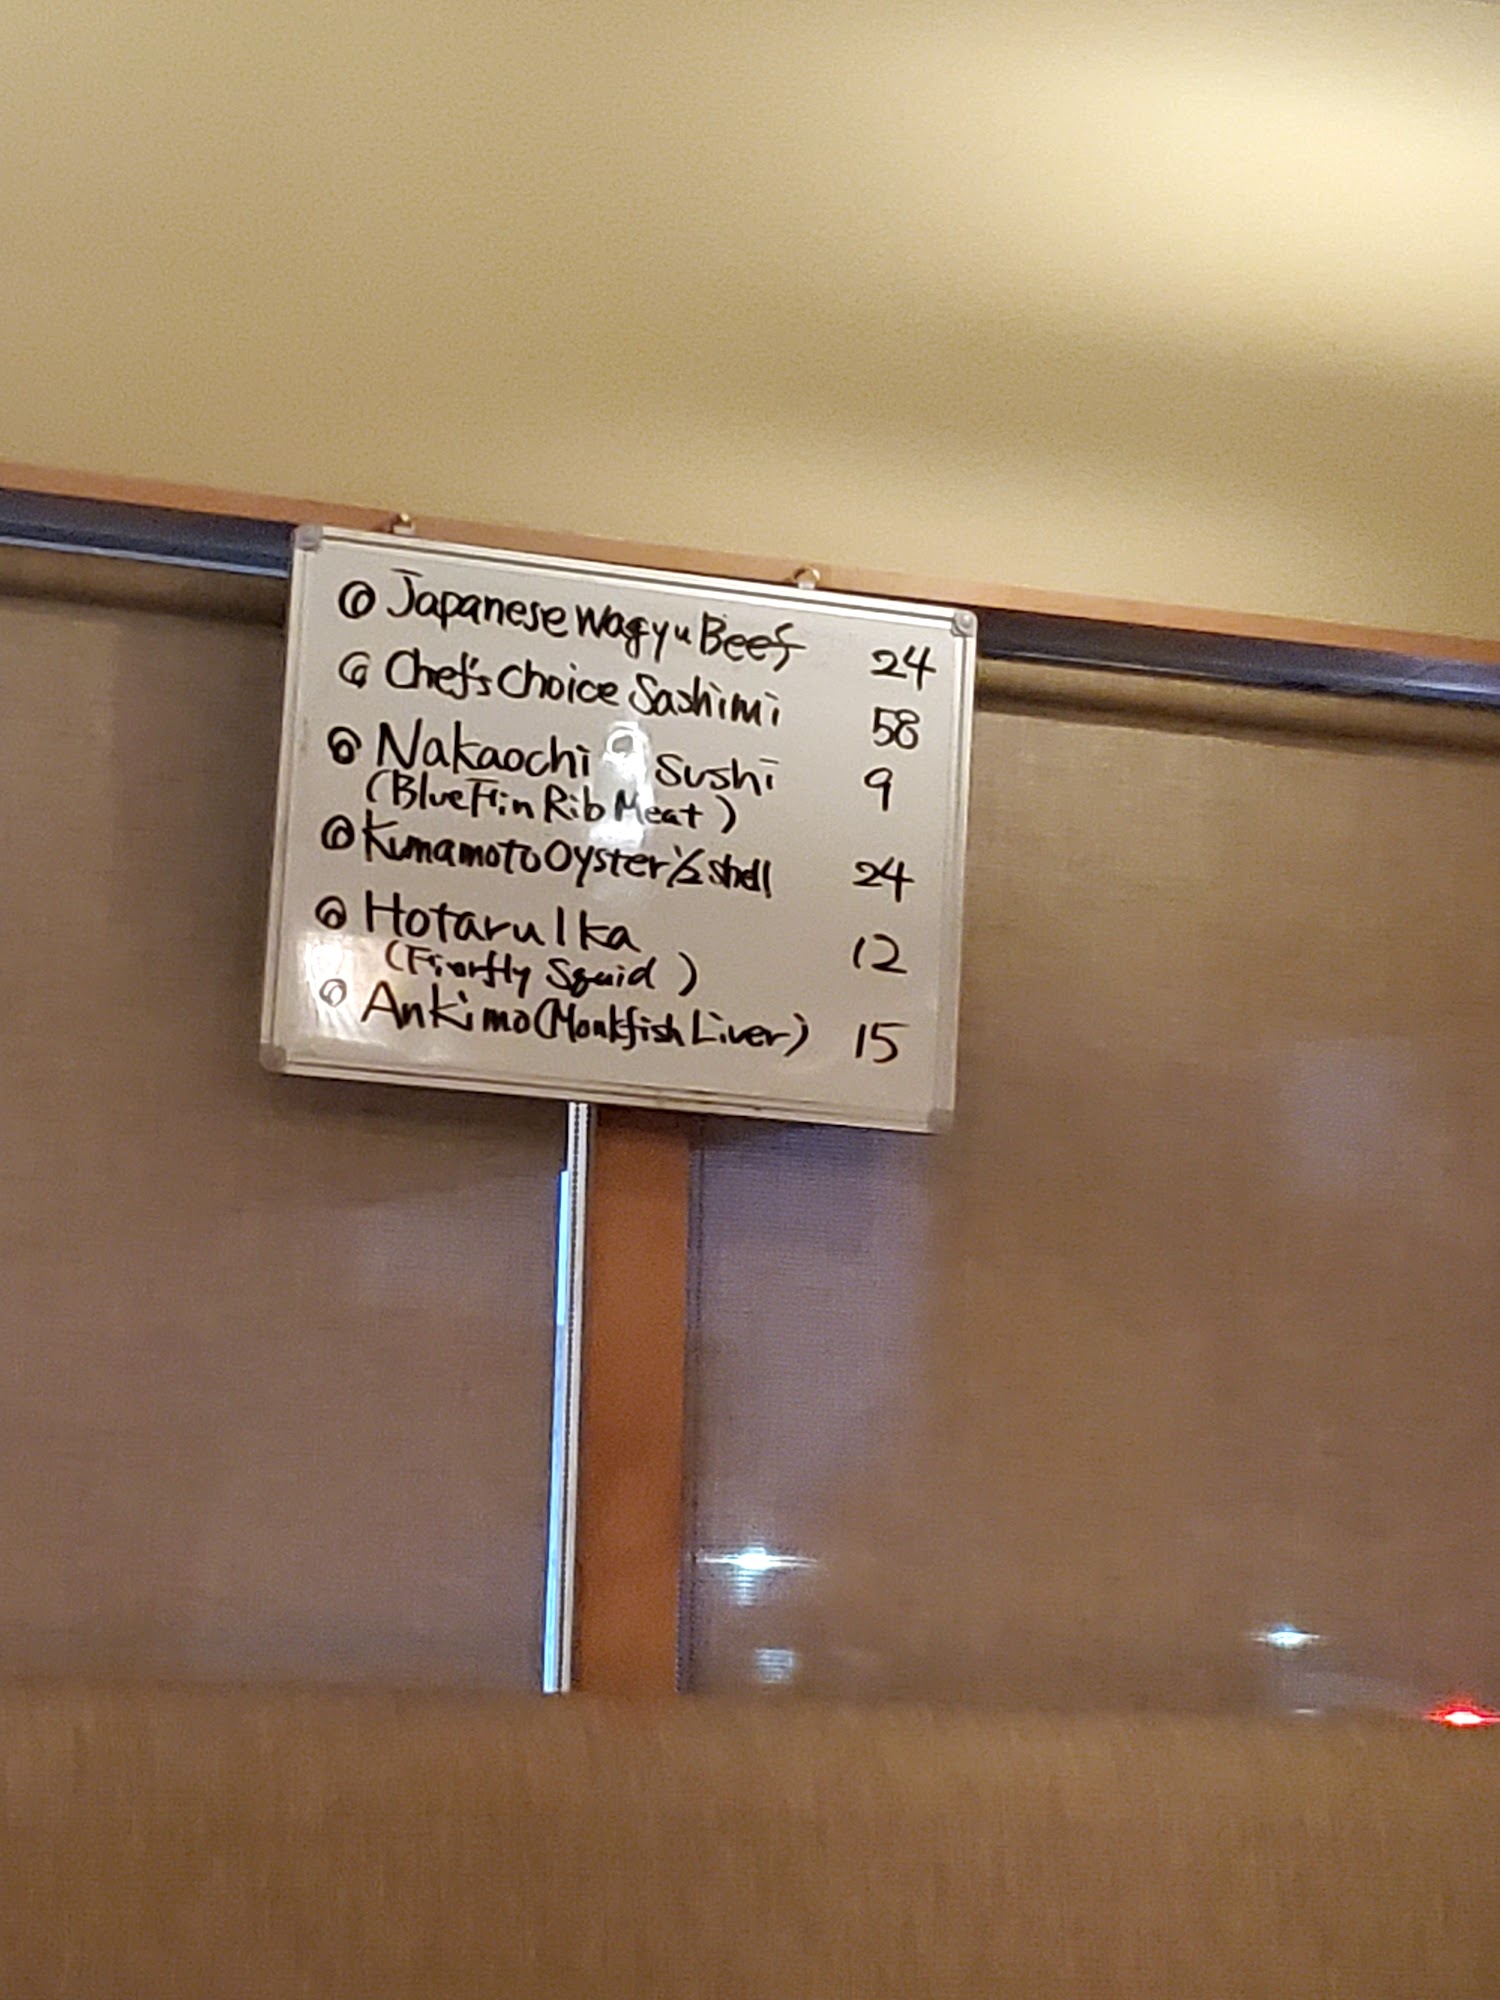 ◎ Japanese Wagyu Beef 24
◎ Chef's Choice Sashimi 58
◎ Nakaochi Sushi 9
(Blue Fin Rib Meat)
◎ Kumamoto Oyster 1/2 shell 24
◎ Hotaru Ika 12
(Firefly Squid)
◎ Ankimo (Monkfish Liver) 15